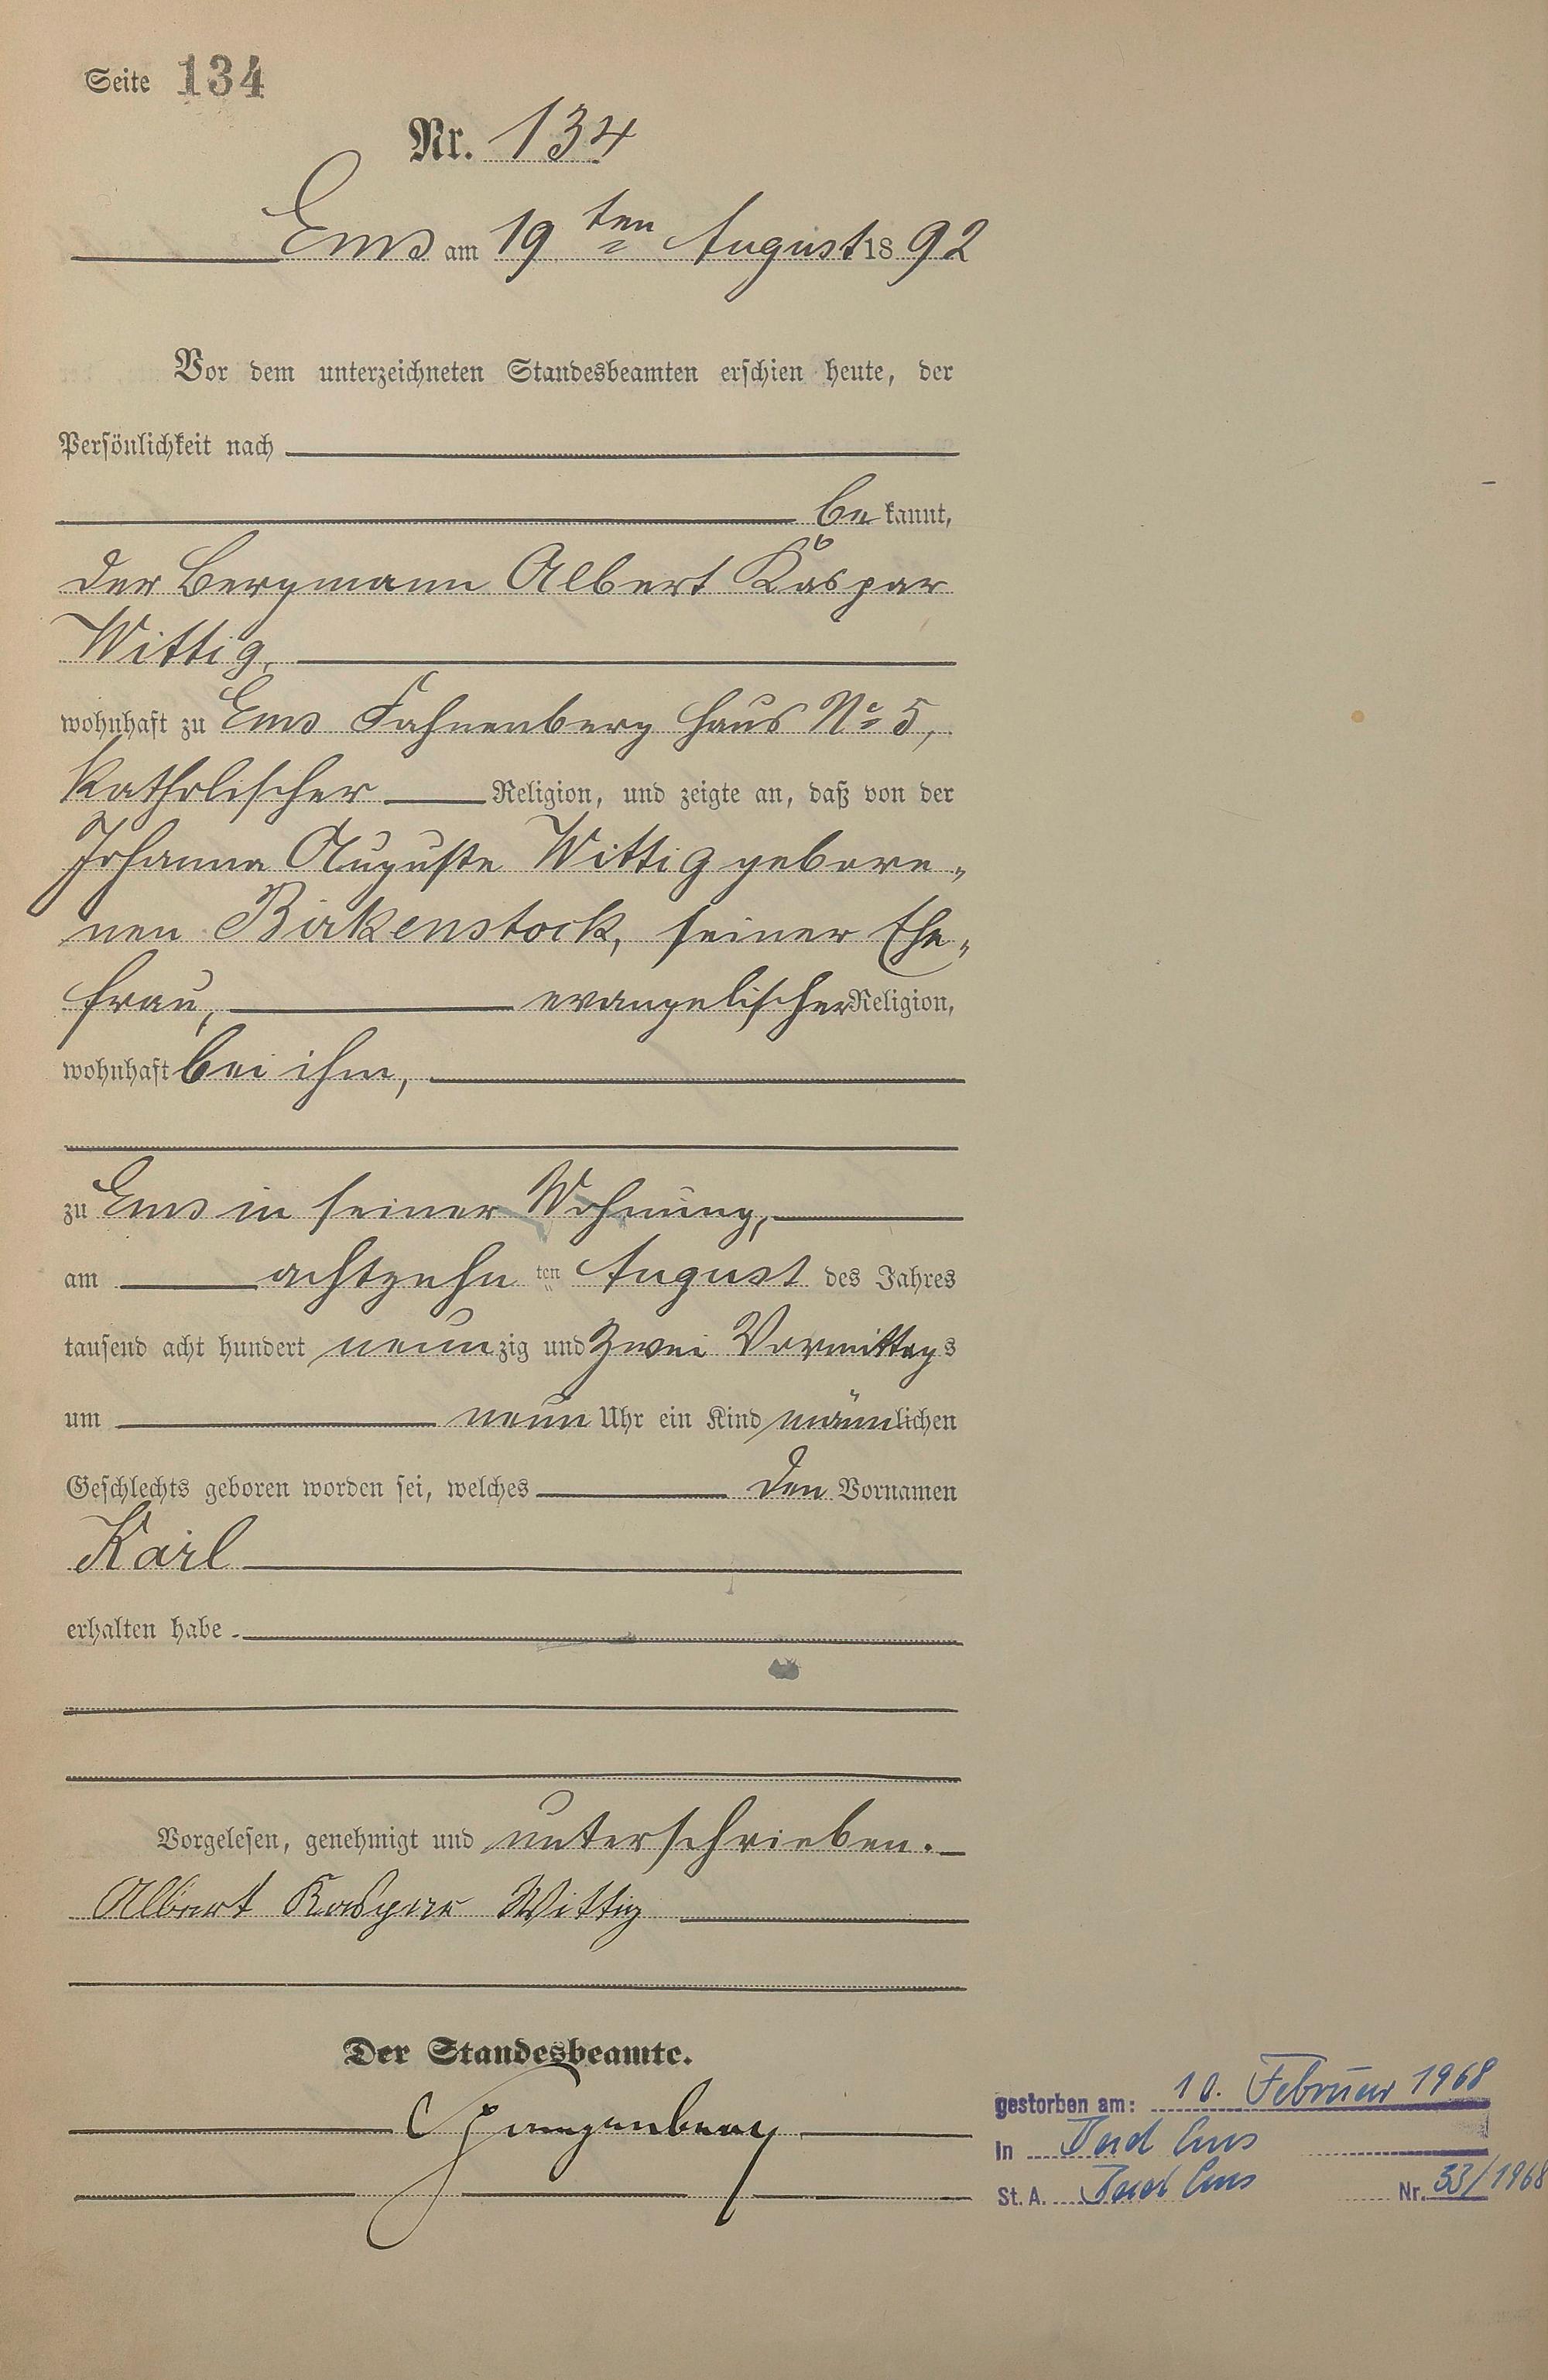 Seite 134
Nr. 134
Ems am 19ten August 1892
Vor dem unterzeichneten Standesbeamten erschien heute, der
Persönlichkeit nach
be kannt,
der Bergmann Albert Kaspar
Wittig,
wohnhaft zu Ems Fahnenberg Haus No 5,
katholischer Religion, und zeigte an, daß von der
Johanna Auguste Wittig gebore-
nen Birkenstock, seiner Ehe-
frau, evangelischer Religion,
wohnhaft bei ihm,
zu Ems in seiner Wohnung,
am achtzehn ten August des Jahres
tausend acht hundert neunzig und zwei Vormittags
um neun Uhr ein Kind männlichen
Geschlechts geboren worden sei, welches den Vornamen
Karl
erhalten habe.
Vorgelesen, genehmigt und unterschrieben.
Albert Kaspar Wittig
Der Standesbeamte.
Spangenberg
gestorben am: 10. Februar 1968
In Bad Ems
St. A. Bad Ems Nr. 33/1968